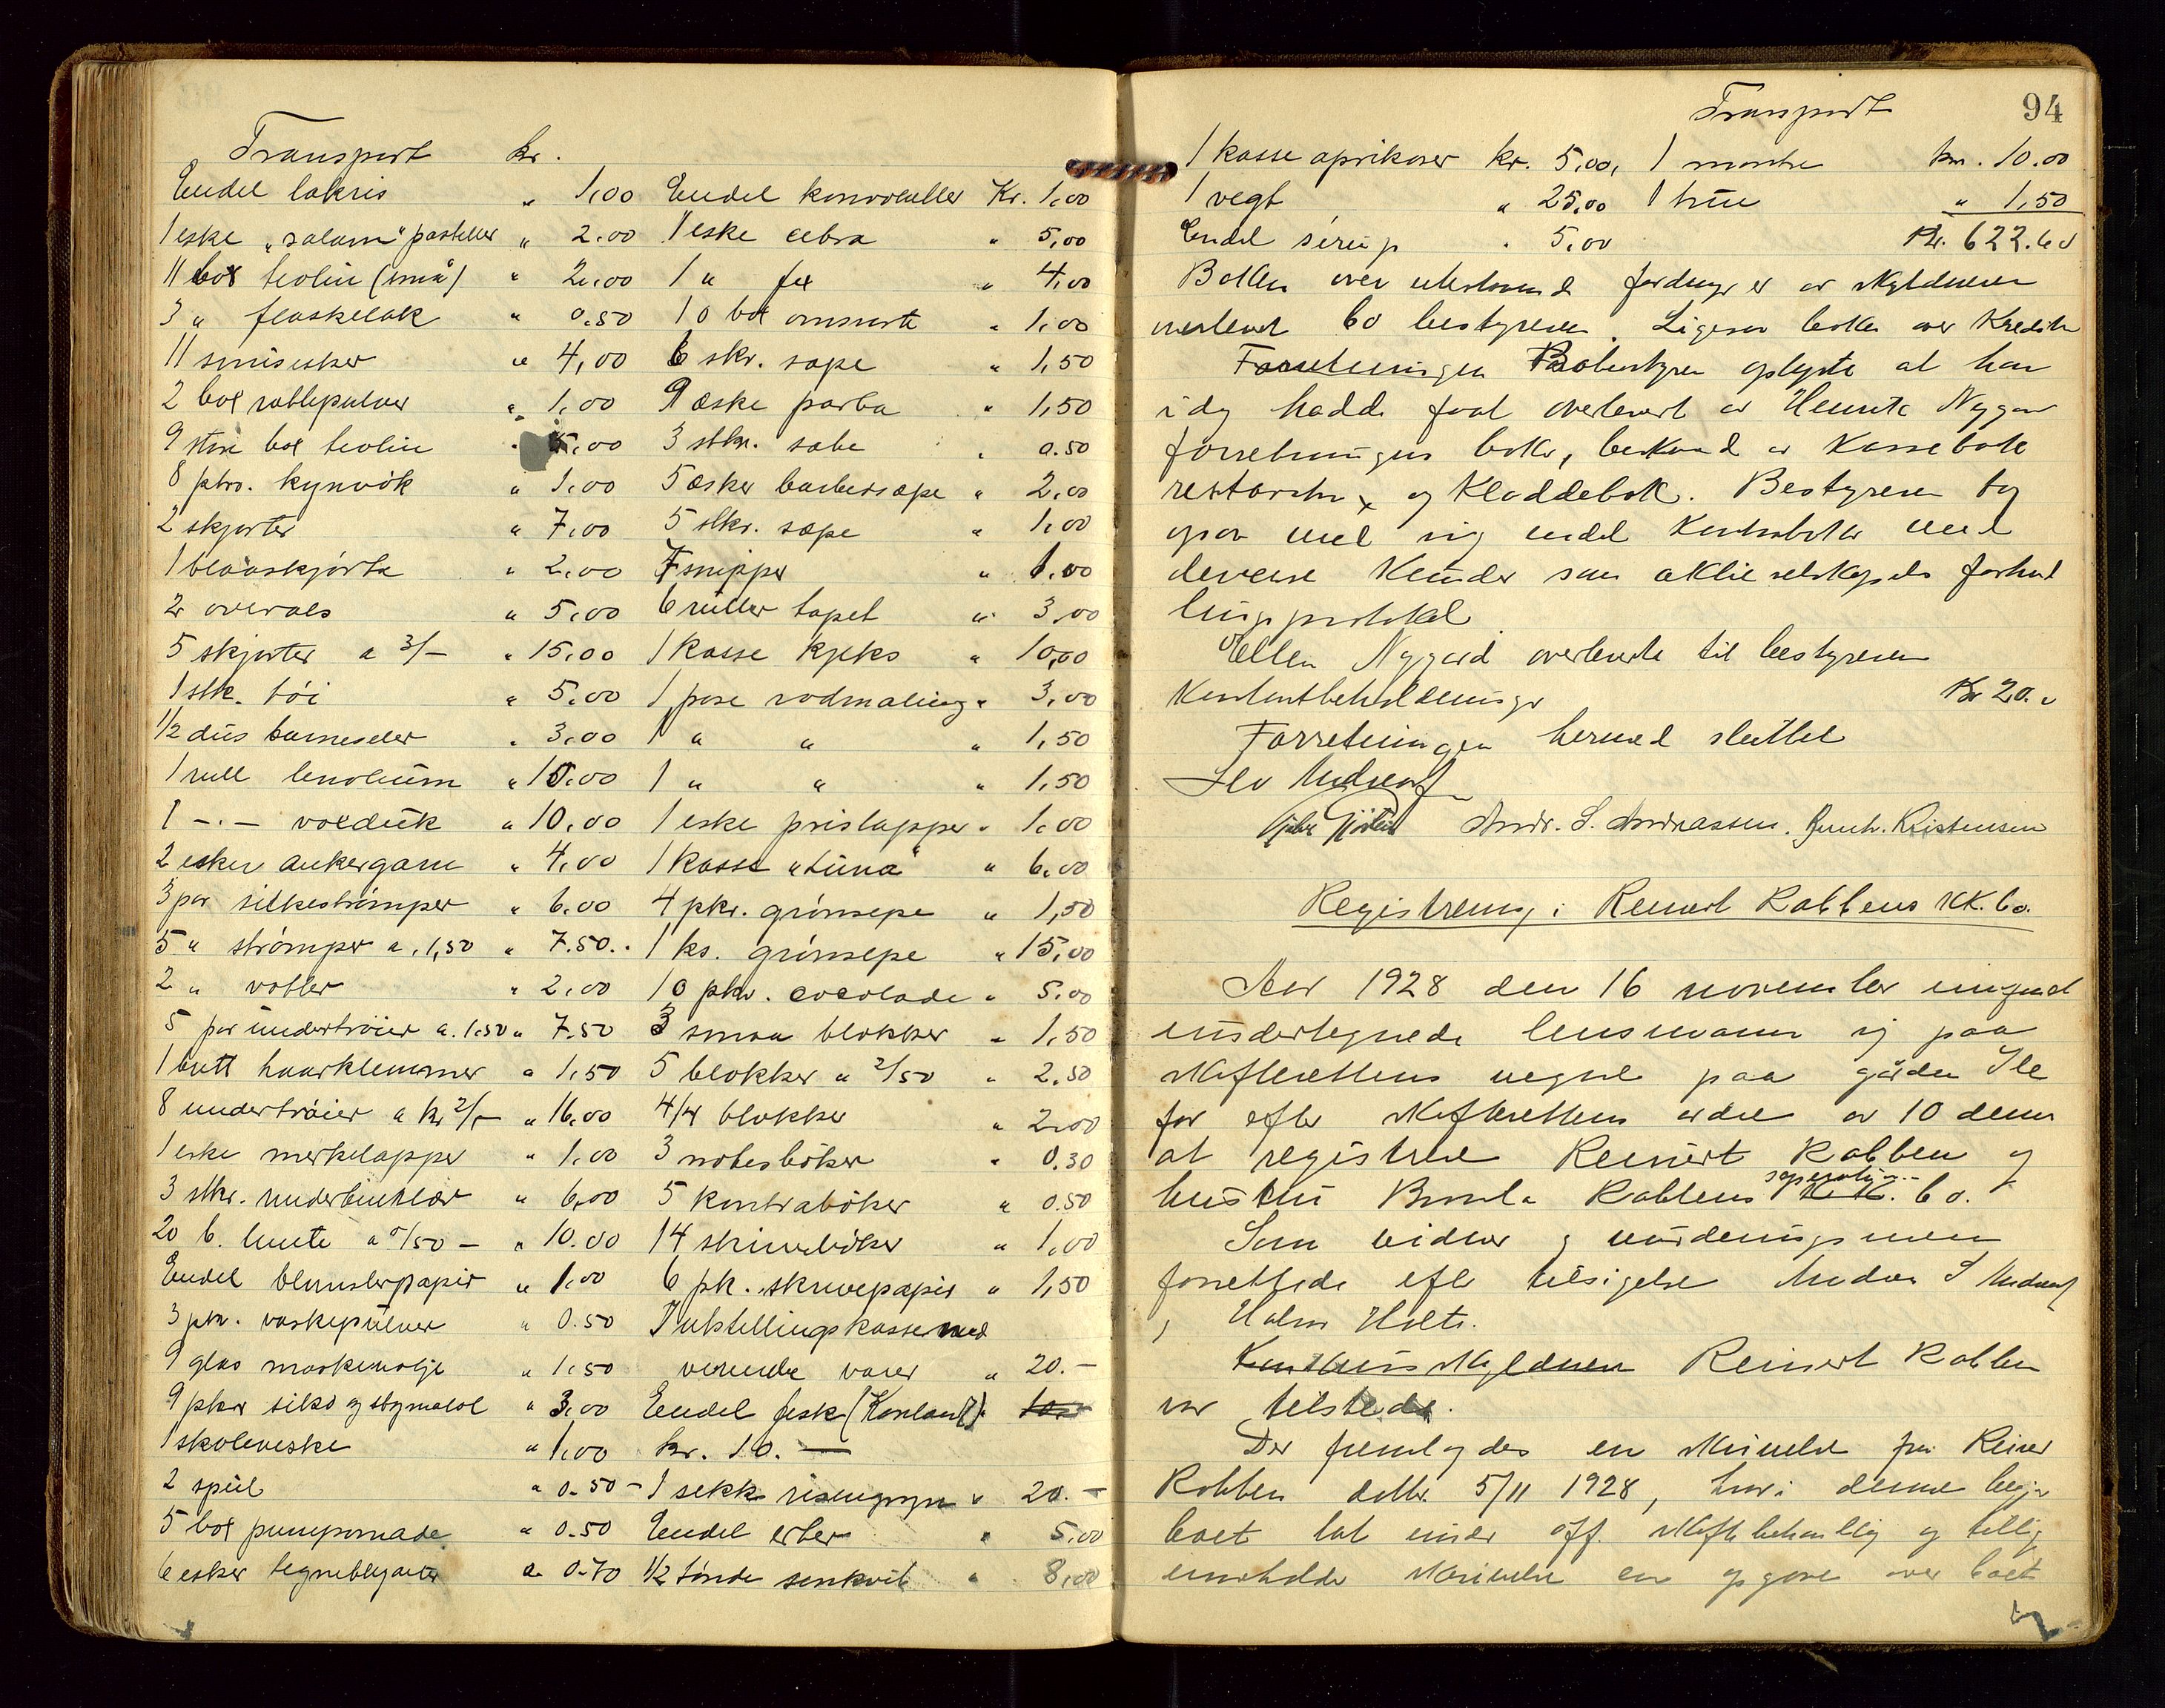 Transport kr.
Endel lakris " 1,00 Endel konvolutter Kr. 1,00
1 eske "salam" pastiller " 2.00 1 eske cebra " 5,00
11 box teolin (små) " 2,00 1 " " 4,00
3 " flaskelak " 0.50 10 box " 1,00
11 snusesker " 4,00 6 stkr. sæpe " 1,50
2 box rottepulver " 1,00 9 æske " 1,50
9 store box teolin " 5,00 3 stkr. " 0.50
8 pkr. " 1,00 5 æsker barbersæpe " 2,00
2 skjorter " 7,00 5 stkr. sæpe " 1,00
1 blaaskjorte " 2,00 7 snipper " 1.00
2 overals " 5,00 6 ruller tapet " 3,00
5 skjorter a 3/- " 15,00 1 kasse kjeks " 10,00
1 stk. tøi " 5,00 1 pose rødmaling " 3,00
1/2 dus barneseler " 3,00 1 " " " 1,50
1 rull linoleum " 15,00 1 " " " 1,50
1 -.- voxduk " 10,00 1 eske prislapper " 1,00
2 esker ankergarn " 4,00 1 kasse "Luna" " 6,00
3 par silkestrømper " 6,00 4 pkr. grønsepe " 1,50
5 " strømper a. 1,50 " 7.50. 1 ks. grønsepe " 15,00
2 " votter " 2,00 10 pkr. cocolade " 5,00
5 par undertrøier a. 1.50 " 7.50 3 smaa blokker " 1,50
1 brett haarklemmer " 1,50 5 blokker a 2/50 " 2.50
8 undertrøier a kr 2/- " 16,00 4/4 blokker " 2,00
1 eske merkelapper " 1,00 3 notesbøker " 0.30
3 stkr. underbenklær " 6,00 5 kontrabøker " 0.50
20 b. lunte a 0/50 - " 10.00 14 skrivebøker " 1,00
Endel blomsterpapir " 1,00 6 pk. skrivepapir " 1,50
3 pkr. vaskepulver " 0.50 1 utstillingskasse med
9 glas maskinolje " 1,50 værende varer " 20.-
9 pkr silko og strymalol " 3,00 Endel fisk
1 skoleveske " 1,00 kr. 10. -
2 spil " 0.50 - 1 sekk risengryn " 20.-
5 box pumpomade " 0.50 Endel erter " 5.00
6 esker tegneblyanter " 0.70 1/2 tønde " 8,00
Transport 94
1 kasse aprikoser kr. 5,00, 1 kr. 10.00
1 vegt " 25,00 1 hue " 1,50
Endel sirup " 5,00 Kr. 622.60
Boken over utestaaende fordringer er av skyldneren
overlevert bobestyreren. Ligesaa boken over Kreditor
Forretningen Bobestyrer oplyste at han
i dag hadde faat overlevert av Henrik Nygaard
forretningens bøker, bestaaende av Kassebok
og Kladdebok. Bestyreren tog
ogsaa med sig endel Kontrabøker med
diverse Kunder som aktieselskapets forhand
lings protokol.
Ellen Nygard overleverte til bestyreren
Kontantbeholdninger Kr 20.
Forretningen hermed sluttet

Andr. S. Andreassen. Bernh. Kristensen
Registrering i Reinert Robbens KK. bo.
Aar 1928 den 16 november
undertegnede lensmann sig paa
skifterettens vegne paa gården
for efter skifterettens ordre av 10 dennes
at registrere Reinert Robben og
hustru Robbens separations- bo.
Som vidner og vurderingsmenn
forrettede efter tilsigelse Andreas S Andreassen
Holm Holte.
Skyldneren Reinert Robben
var tilstede.
Der fremlagdes en skrivelse fra Reinert
Robben datr. 5/11 1928, hvori denne begjær
boet tat under off. skiftebehandling og tillig
inneholder skrivelsen en opgave over boets